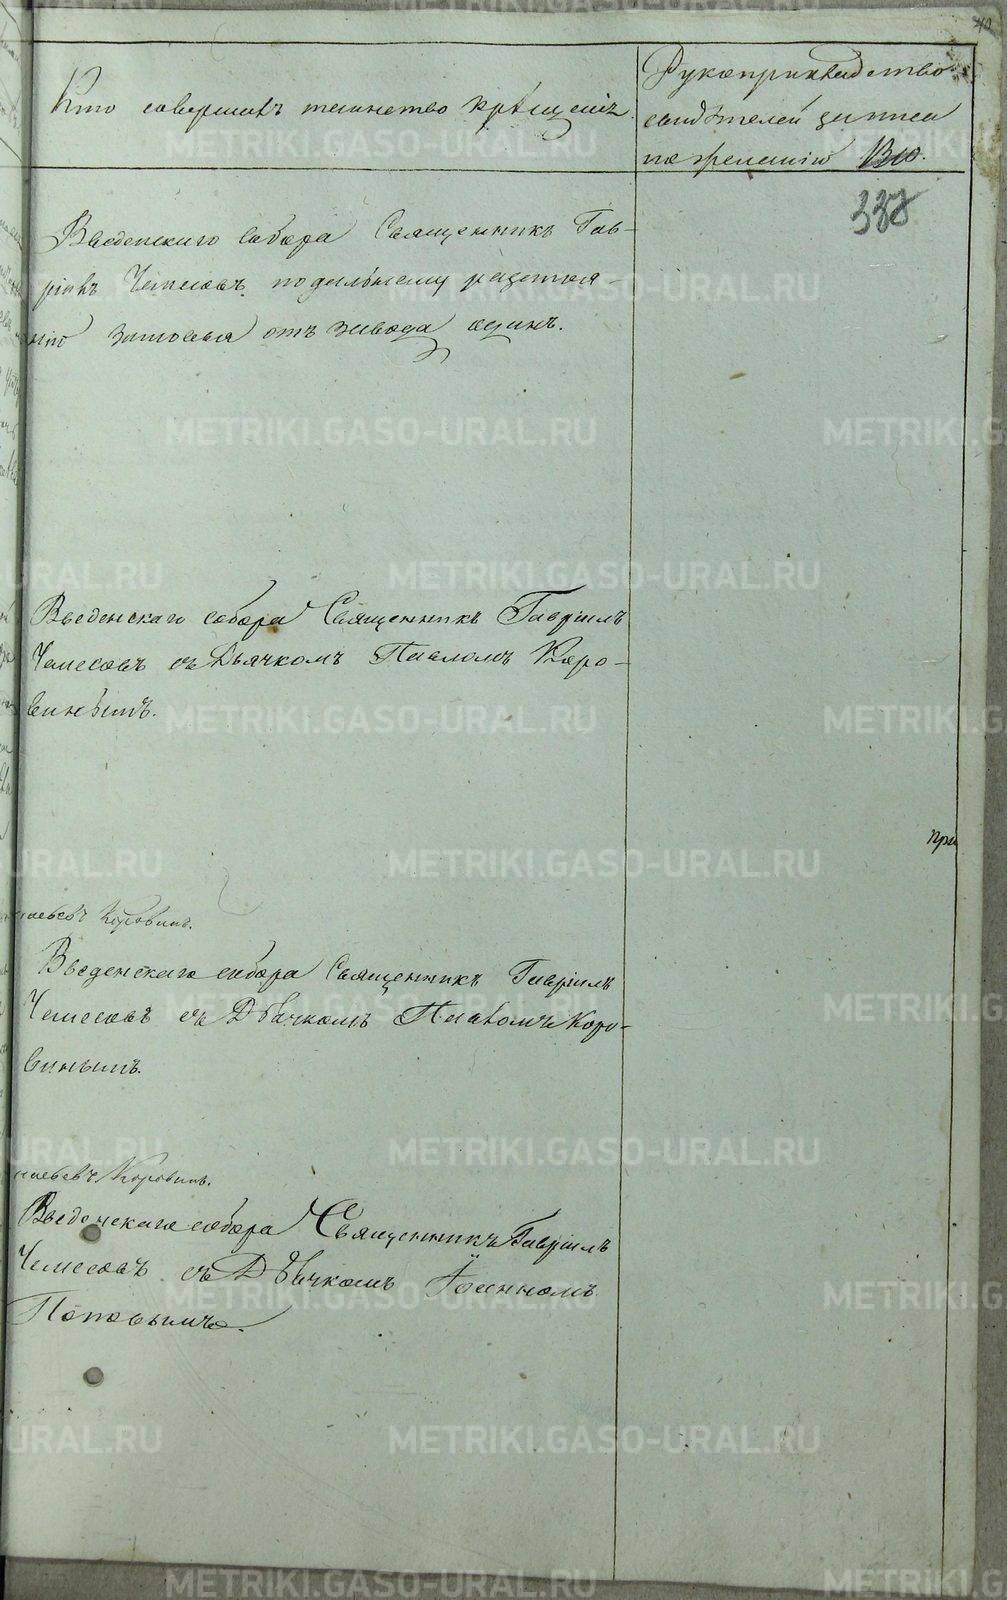 40
Кто совершалъ таинство крещенія.
Рукоприкладство
свидѣтелей записи
по желанію
338
Введенскаго собора Священникъ Гав-
ріилъ Чемесовъ, по дальнему разстоя-
нію жительства отъ завода одинъ.
Введенскаго собора Священникъ Гавріилъ
Чемесовъ съ Дьячкомъ Павломъ Коро-
винымъ.
при
Коровинъ.
Введенскаго собора Священникъ Гавріилъ
Чемесовъ съ Дьячкомъ Павломъ Коро-
винымъ.
Коровинъ.
Введенскаго собора Священникъ Гавріилъ
Чемесовъ съ Дьячкомъ Іоанномъ
Поповымъ.
METRIKI.GASO-URAL.RU